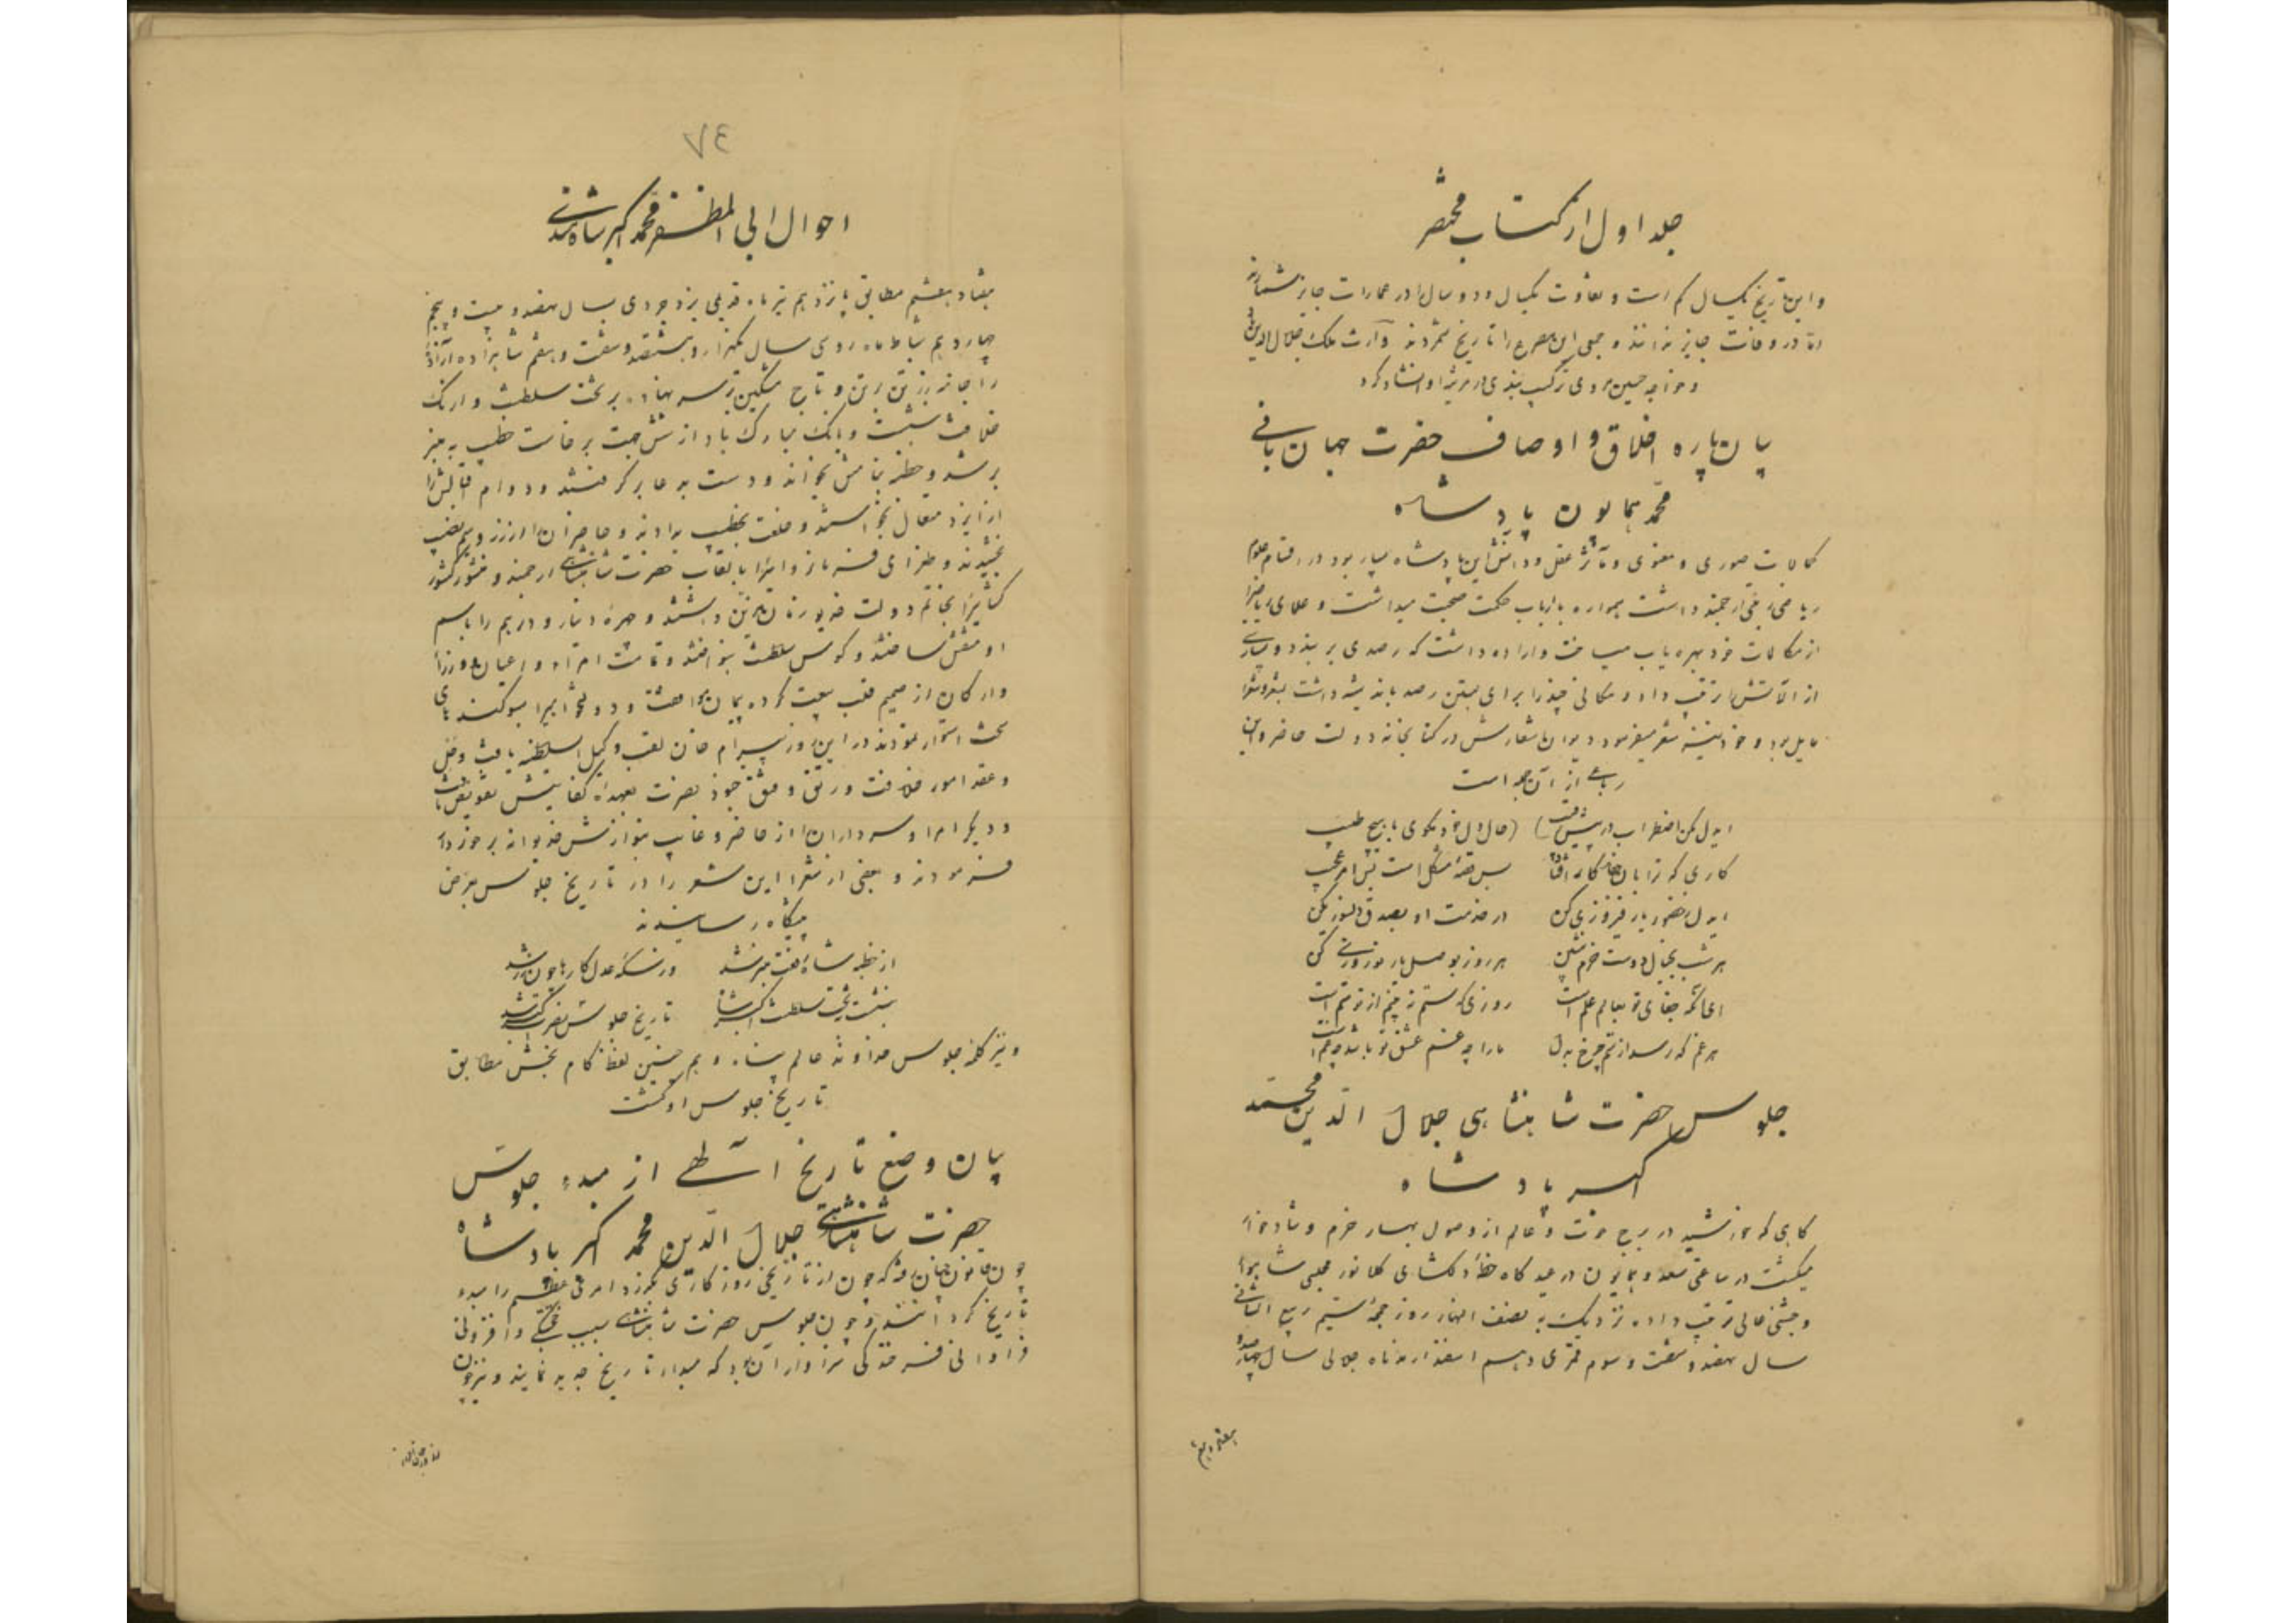 جلد اول از کتاب مختصر
و این تاریخ یکسال کم است و تفاوت یکسال و دو سال را در عمارات جایز شمارند
اما در وفات جایز ندانند و جمعی این مصرع را تاریخ شمردند وارث ملک جلال الدین
و خواجه حسین مروی ترکیب بندی در مرثیه او انشاد کرد
بیان پاره اخلاق و اوصاف حضرت جهان بانی
محمد همایون پادشاه
کمالات صوری و معنوی و مآثر عقل و دانش این پادشاه بسیار بود در اقسام علوم
ریاضی ارجمند داشت همواره با ارباب حکمت صحبت میداشت و علمای ریاضی را
از مکالمات خود بهره یاب میساخت و اراده داشت که رصدی بر بندد و بسیاری
از آلاتش را ترتیب داد و مکانی چند را برای بستن رصد باندیشه داشت بشعر و شعرا
مایل بود و خود نیز شعر میفرمود دیوان اشعارش در کتابخانه دولت حاضر و این
رباعی از آن جمله است
ایدل مکن اضطراب در پیش رقیب (حال دل خود مگوی با هیچ طبیب
کاری که ترا با آن جفا کار افتاد بس قصه مشکل است بس امر عجیب
ایدل ز حضور یار فیروزی کن در خدمت او بصدق دلسوزی کن
هر شب بخیال دوست خرم بنشین هر روز بوصل یار نوروزی کن
ای آنکه جفای تو بعالم علم است روزی که ستم نه بینم از تو ستم است
هر غم که رسد از ستم چرخ بدل ما را چه غم عشق تو باشد چه غم است
جلوس حضرت شاهنشاهی جلال الدین محمد
اکبر پادشاه
گاهی که خورشید در برج حوت و عالم از وصول بهار خرم و شادخوار
میگشت در ساعتی سعد و همایون در عید گاه خطه دلگشای کلانور مجلسی شاهوار
و جشنی عالی ترتیب داده نزدیک به نصف النهار روز جمعه سیم ربیع الثانی
سال نهصد و شصت و سوم قمری دهم اسفندارمذ ماه جلالی سال چهارصد و
هفتاد و هفتم
۷٤
احوال ابی المظفر محمد اکبر شاه
هفتاد و هفتم مطابق پانزدهم تیر ماه قدیمی یزدجردی سال نهصد و بیست و پنجم
چهاردهم شباط ماه رومی سال یکهزار و هشتصد و شصت و هفتم شاهزاده آزاده
را جامه زرین بر تن و تاج مشکین بر سر نهاده بر تخت سلطنت و اورنگ
خلافت نشست و بانگ مبارک باد از شش جهت برخاست خطیب به منبر
بر شد و خطبه بنامش بخواند و دست به دعا بر گرفتند و دوام اقبالش را
از ایزد متعال بخواستند و خلعت بخطیب بدادند و حاضران را از زر و سیم نصیب
بخشیدند و طغرای فرمانروائی را بالقاب حضرت شاهنشاهی ارجمند و منشور کشور
گشائی را بخاتم دولت خدیو زمان مزین داشتند و چهره دینار و درهم را باسم
او منقش ساختند و کوس سلطنت بنواختند و تمامت امراء و اعیان و وزراء
و ارکان از صمیم قلب بیعت کرده پیمان مواضعت و دولتخواهی را بسوگند های
سخت استوار نمودند در این روز بیرام خان لقب وکیل السلطنه یافت و حل
و عقد امور خلافت و رتق و فتق جنود نصرت بعهده کفایتش تفویض یافت
و دیگر امرا و سرداران را از حاضر و غایب بنوازش خدیوانه برخوردار
فرمودند و بعضی از شعرا این شعر را در تاریخ جلوسش بعرض
پیشگاه رسانیدند
از خطبه شاه رفعت منبر شد وز سکه عدل کارها چون زر شد
بنشست بتخت سلطنت اکبر شاه تاریخ جلوس نصرت اکبر شد
و نیز کلمه جلوس خداوند عالم پناه و هم چنین لفظ کام بخش مطابق
تاریخ جلوس او گشت
بیان وضع تاریخ الهی از مبدء جلوس
حضرت شاهنشاهی جلال الدین محمد اکبر پادشاه
چون قانون جهان رفته که چون از تاریخی روزگاری بگذرد امری عظیم را مبدء
تاریخ گردانند و چون جلوس حضرت شاهنشاهی بسبب خجستگی و افزونی
فراوانی فرخندگی سزاوار آن بود که مبداء تاریخ جدید نمایند و نیز چون